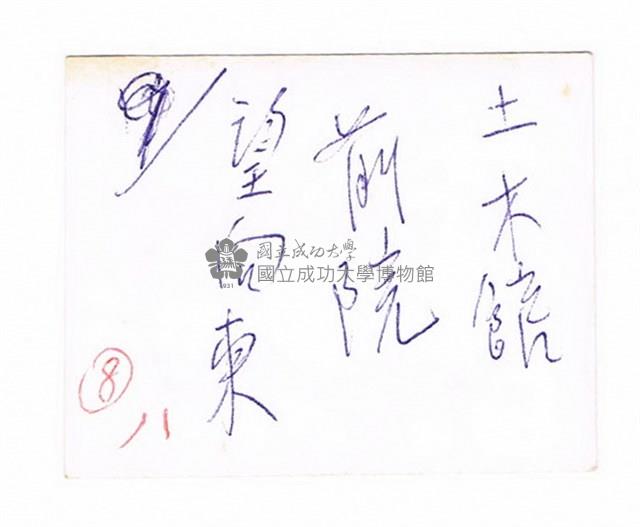 土木館
前院
望向東
8
八
國立成功大學
國立成功大學博物館
1931